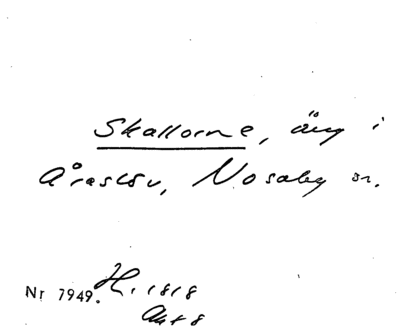 Skallorne, äng i
Åraslöv, Nosaby sn.
Nr 7949. H. 1818
Akt 8